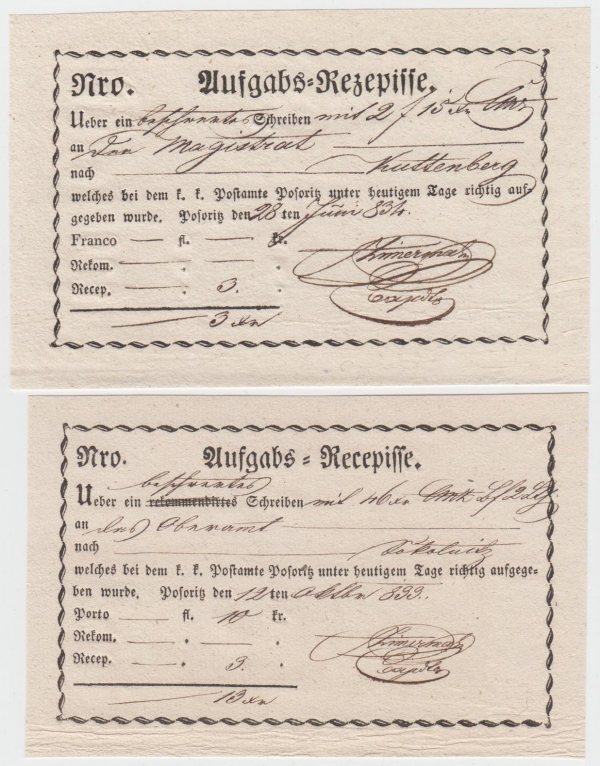 Nro. Aufgabs=Rezepisse.
Ueber ein beschwertes Schreiben mit 2 f 15 xr
an Den Magistrat
nach Kuttenberg
welches bei dem k. k. Postamte Posoritz unter heutigem Tage richtig auf-
gegeben wurde. Posoritz den 28 ten Juni 834.
Franco — fl. — kr.
Rekom. — . — .
Recep. — . 3. .
Zimerman
3 xr
Nro. Aufgabs = Recepisse.
beschwertes
Ueber ein rekommendirtes Schreiben mit 46 xr
an das Oberamt
nach Sokolnitz
welches bei dem k. k. Postamte Posoritz unter heutigem Tage richtig aufgege-
ben wurde. Posoritz den 12 ten Oktbr 833.
Porto — fl. 10 kr.
Rekom. — . — .
Recep. — . 3. .
Zimerman
13 xr